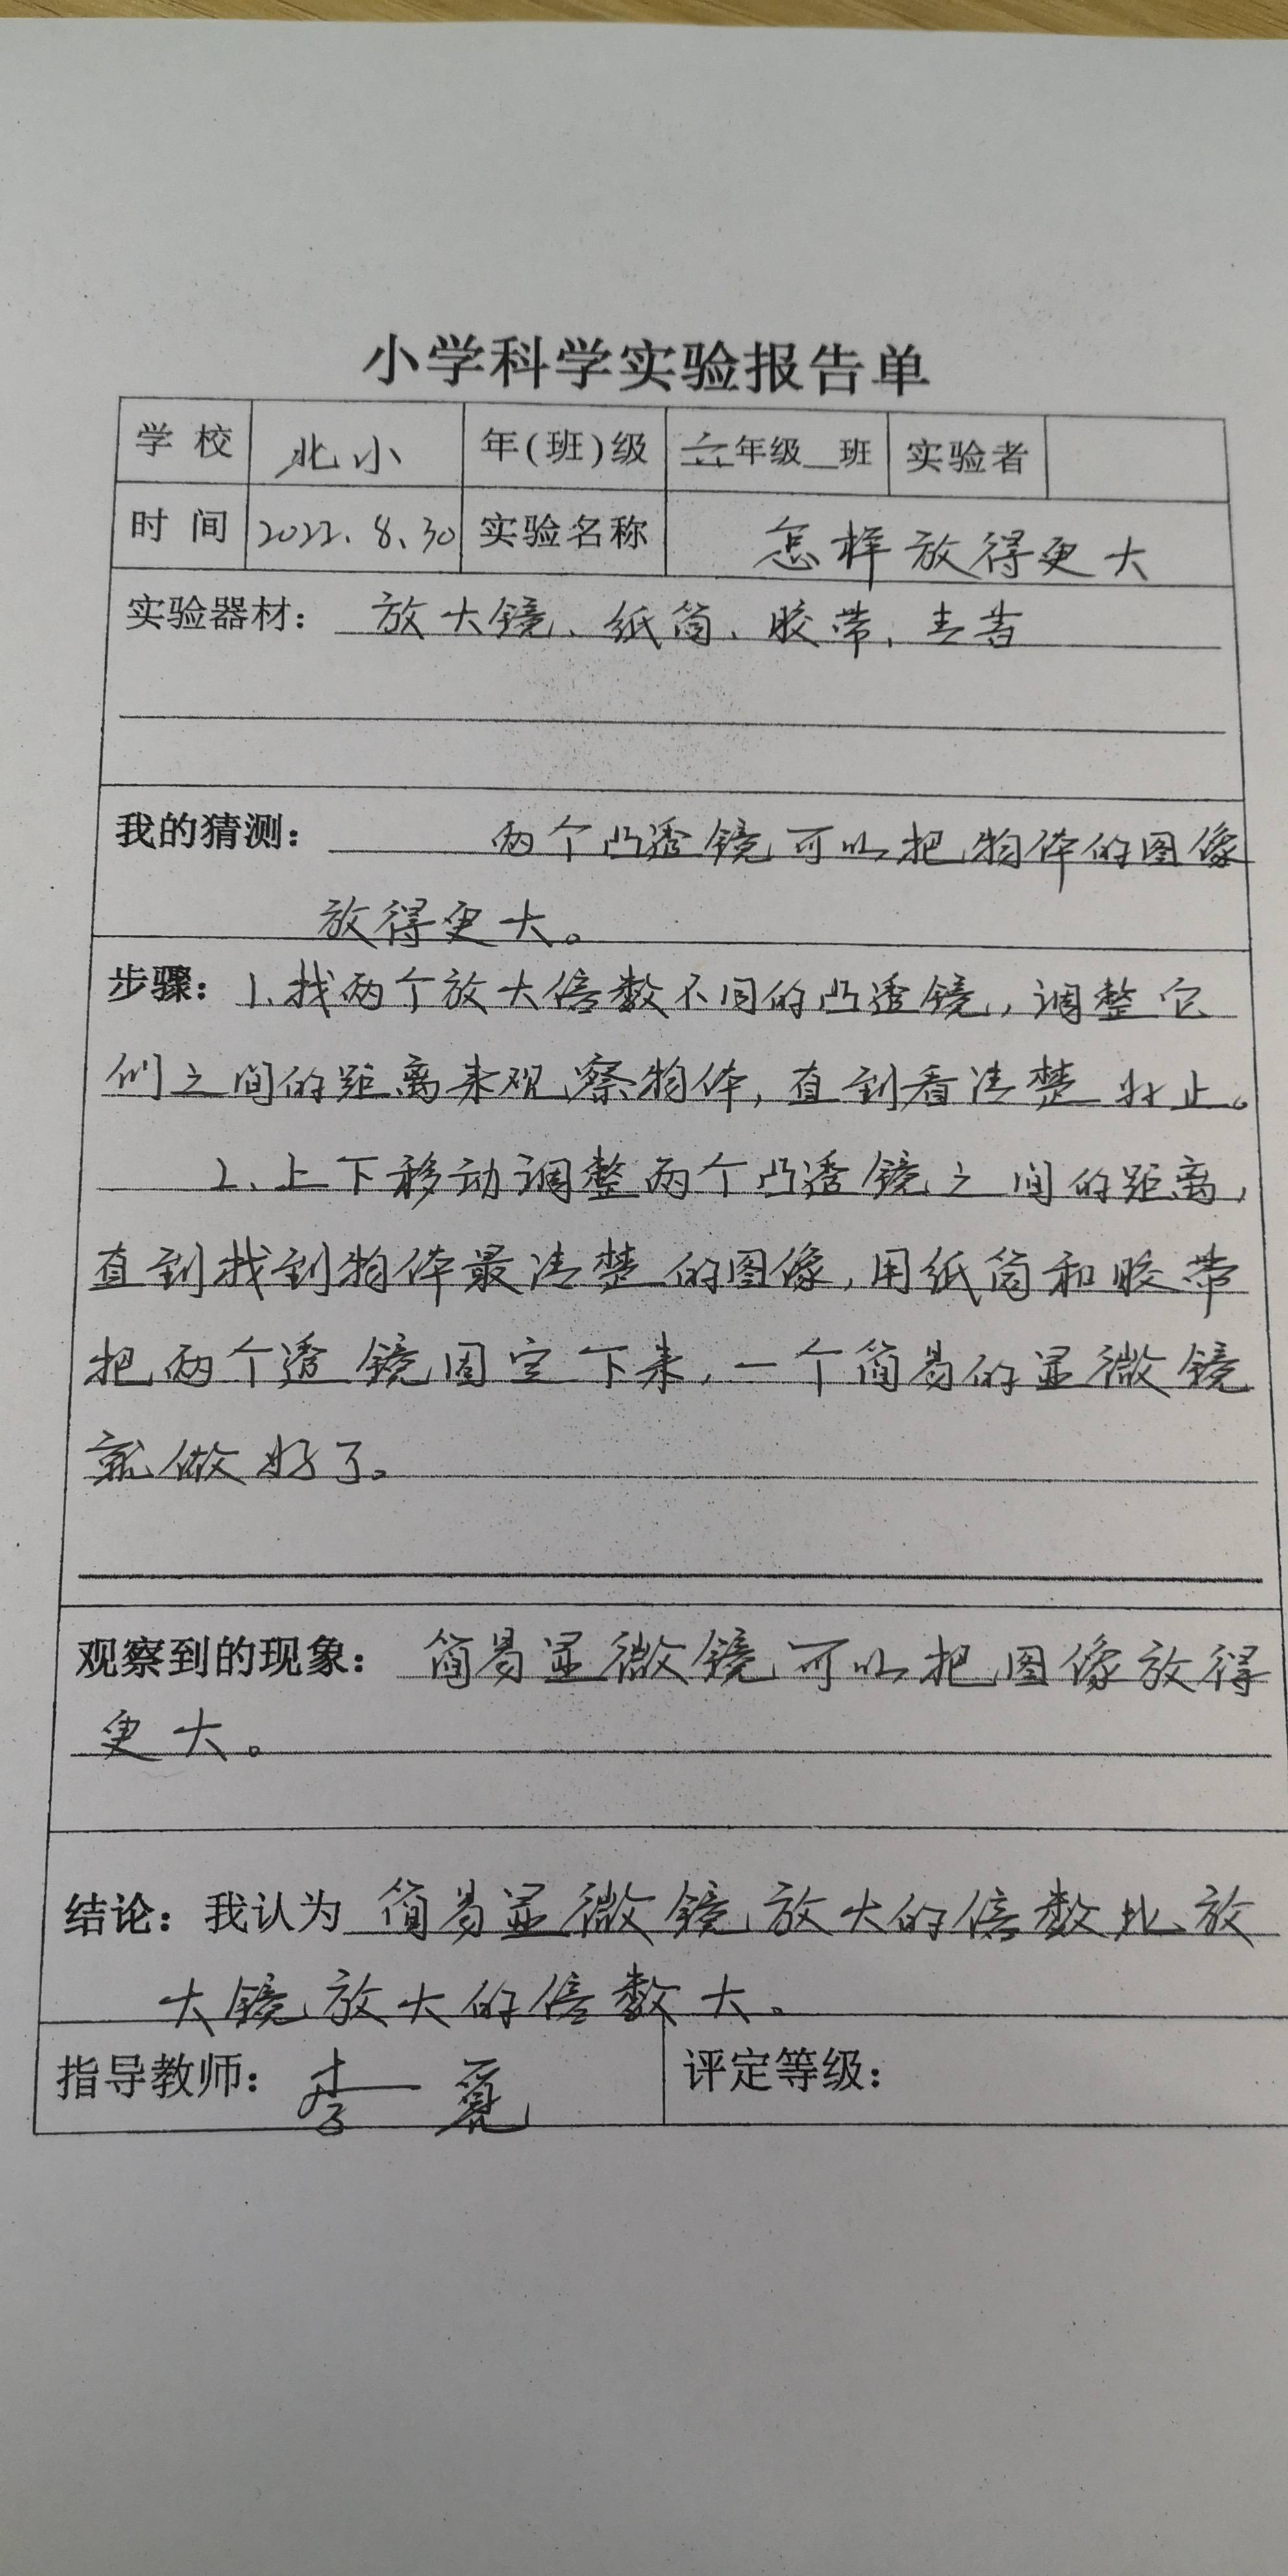 小学科学实验报告单
学校 北小 年(班)级 六年级__班 实验者
时间 2022.8.30 实验名称 怎样放得更大
实验器材： 放大镜、纸筒、胶带、
我的猜测： 两个凸透镜可以把物体的图像
放得更大。
步骤：1.找两个放大倍数不同的凸透镜，调整它
们之间的距离来观察物体，直到看清楚为止。
2、上下移动调整两个凸透镜之间的距离，
直到找到物体最清楚的图像，用纸筒和胶带
把两个透镜固定下来，一个简易的显微镜
就做好了。
观察到的现象： 简易显微镜可以把图像放得
更大。
结论：我认为 简易显微镜放大的倍数比放
大镜放大的倍数大。
指导教师：李 评定等级：